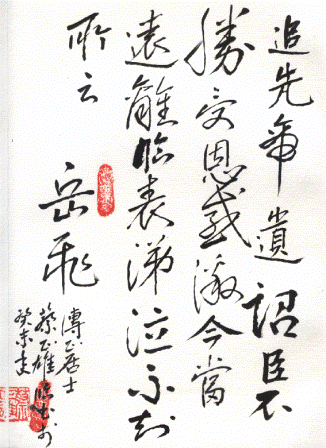 追先帝遺詔臣不
勝受恩感激今當
遠離臨表涕泣不知
所云
岳飛
傳正居士
蔡正雄臨書於
癸未